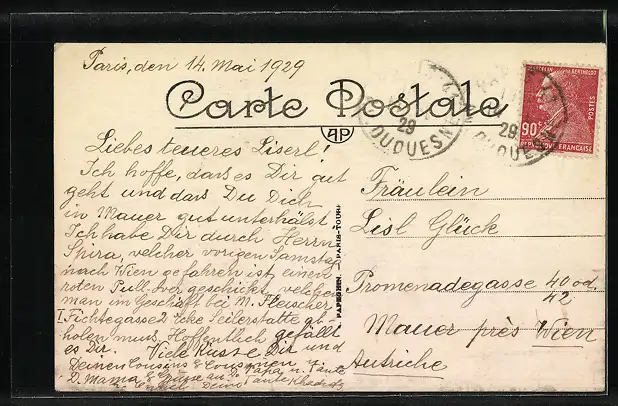 Paris, den 14. Mai 1929
Carte Postale
AP
Liebes teueres Liserl!
Ich hoffe, dass es Dir gut
geht und dass Du Dich
in Mauer gut unterhälst.
Ich habe Dir durch Herrn
Spira, welcher vorigen Samstag
nach Wien gefahren ist, einen
roten Pull-over geschickt, welchen
man im Geschäft bei M. Fleischer
I Fichtegasse 2 Ecke Seilerstätte ab
holen muss. Hoffentlich gefällt
es Dir. Viele Küsse Dir und
Deinen Cousins & Cousinen u.
D. Mama & Grüsse an Papa u. Tante
Deine Tante
PAPEGHIN. - PARIS-TOURS
Fräulein
Lisl Glück
Promenadegasse 40 od.
42
Mauer près Wien
Autriche
29
DUQUESNE
29
DUQUESNE
BERTHELOT
90c
POSTES
REPUBLIQUE FRANÇAISE